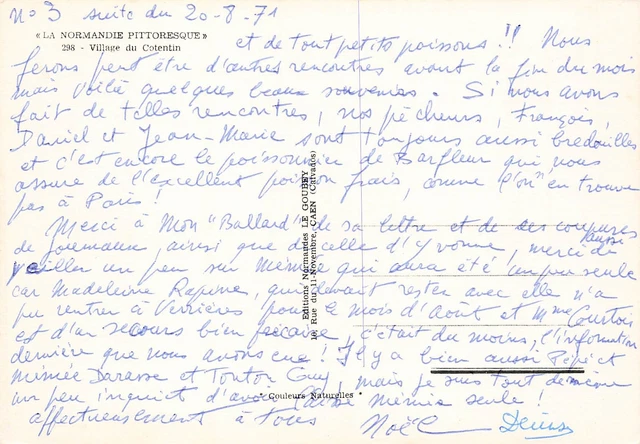 N° 3 suite du 20-8-71
« LA NORMANDIE PITTORESQUE »
298 - Village du Cotentin
et de tout petits poissons !! Nous
ferons peut être d'autres rencontres avant la fin du mois
mais voilà quelques beaux souvenirs. Si nous avons
fait de telles rencontres, nos pêcheurs, François,
Daniel et Jean-Marie sont toujours aussi bredouilles
et c'est encore le poissonnier de Barfleur qui nous
assure de l'excellent poisson frais, comme "l'on" en trouve
pas à Paris !
Merci à Mon "Ballard" de sa lettre et de ses coupures
de journaux ainsi que de celle d'Yvonne, merci de aussi
veiller un peu sur Mémé qui aura été un peu seule
car Madeleine, qui devait rester avec elle n'a
pu rentrer à Verrières pour le mois d'août et Mme Courtois
est d'un secours bien précaire, c'était du moins, l'information
dernière que nous avons eue ! Il y a bien aussi Pépé et
Mémée Darasse et Tonton Guy, mais je suis tout de même
un peu inquiet d'avoir laissé Mémée seule !
affectueusement à tous Noël Denise
Editions Normandes LE GOUBEY
10, Rue du 11-Novembre, CAEN (Calvados)
" Couleurs Naturelles "